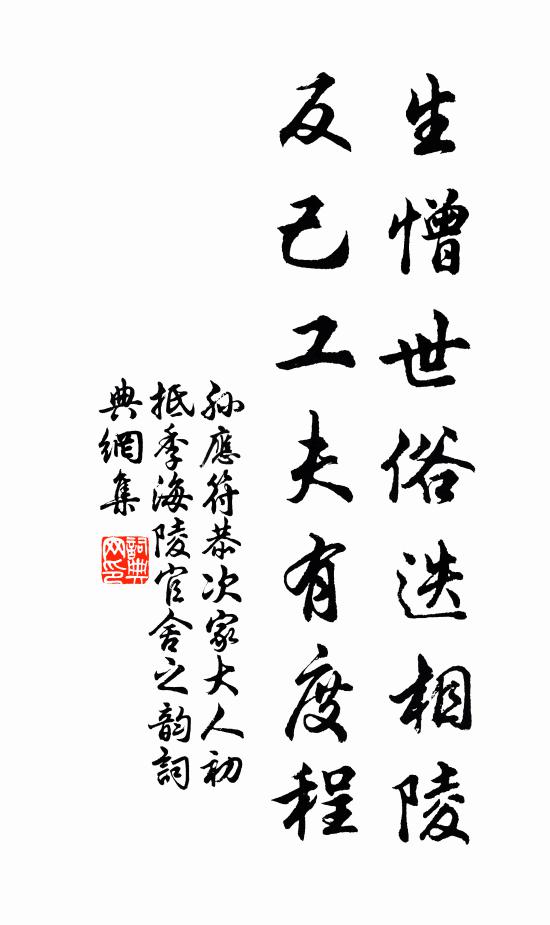 生憎世俗迭相陵
反己工夫有度程
孙應符恭次家大人初
抵季海陵官舍之韵詞
典網集
詞典網印